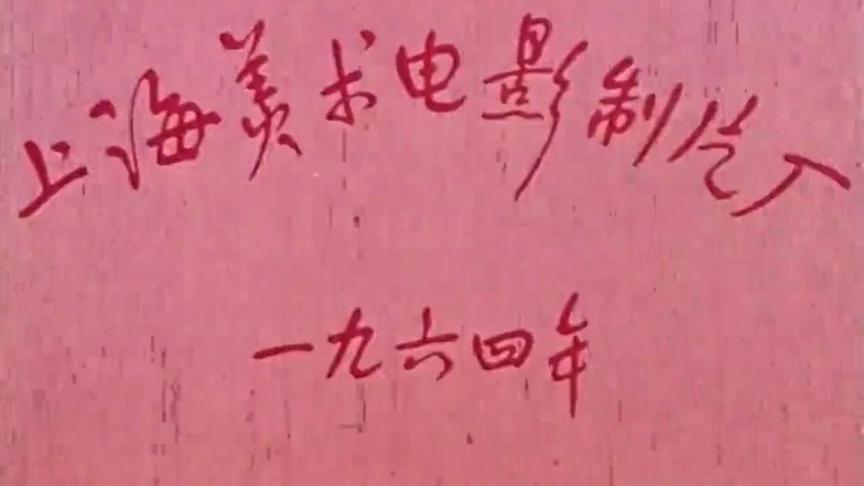 上海美术电影制片厂
一九六四年